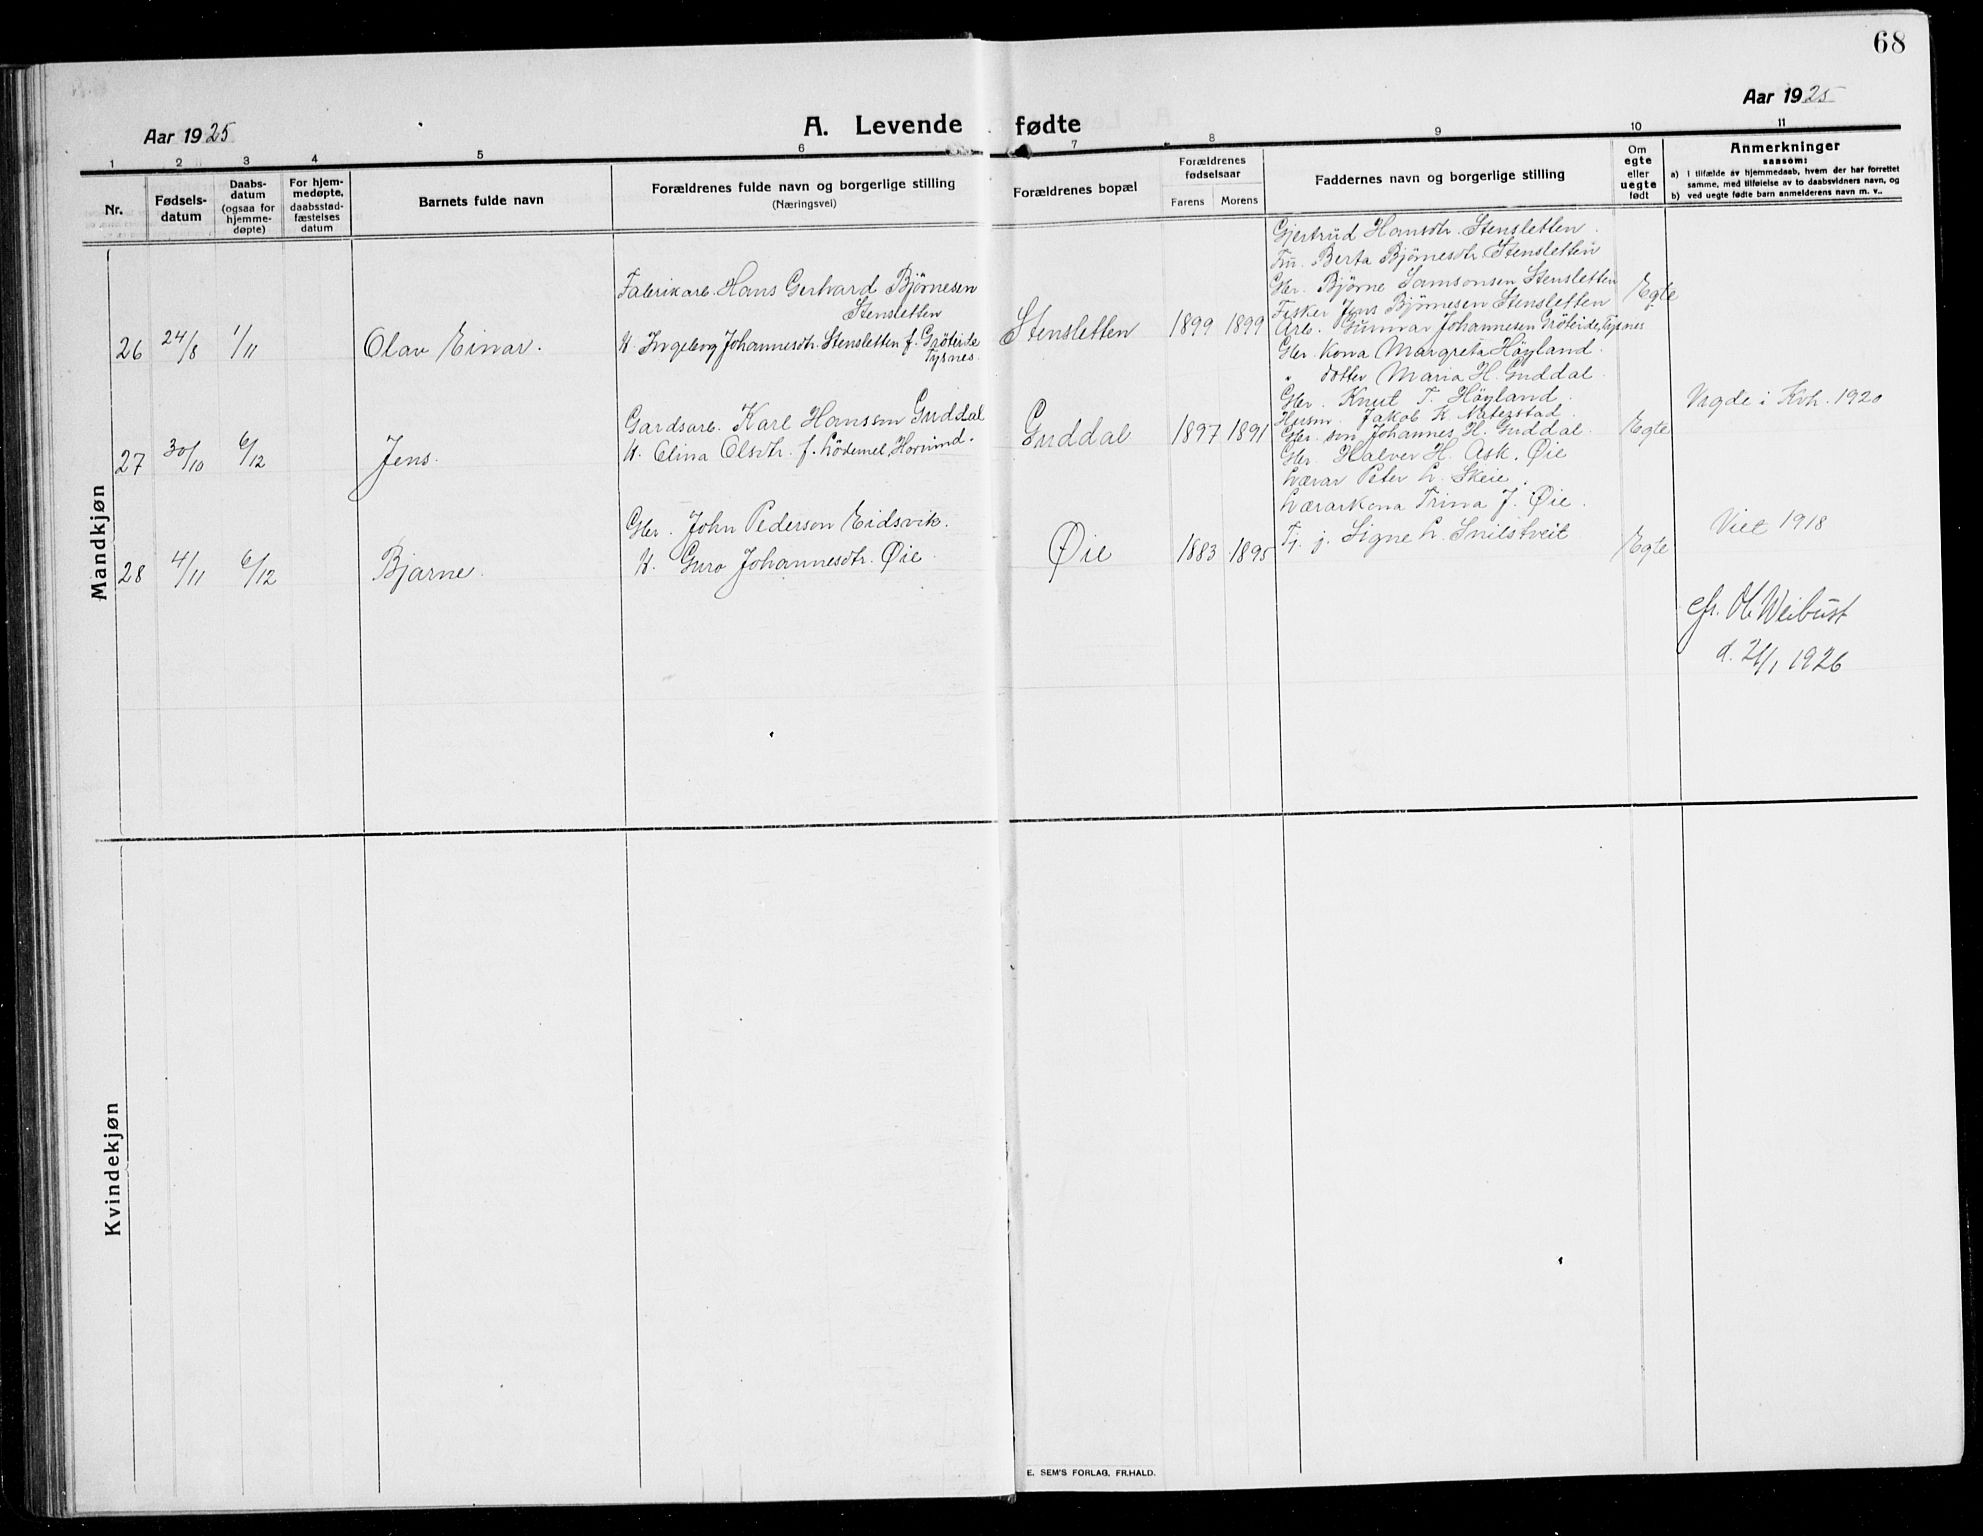 68
Aar 1925
A. Levende fødte
Aar 1925
1 2 3 4 5 6 7 8 9 10 11
Nr.
Fødsels-
datum
Daabs-
datum
(ogsaa for
hjemme-
døpte)
For hjem-
medøpte,
daabsstad-
fæstelses
datum
Barnets fulde navn
Forældrenes fulde navn og borgerlige stilling
(Næringsvei)
Forældrenes bopæl
Forældrenes
fødselsaar
Farens Morens
Faddernes navn og borgerlige stilling
Om
egte
eller
uegte
født
Anmerkninger
saasom:
a) I tilfælde av hjemmedaab, hvem der har forrettet
samme, med tilføielse av to daabsvidners navn, og
b) ved uegte fødte barn anmelderens navn m. v..
Mandkjøn
26 24/8 1/11 Olav Einar.
Fabrikarb. Hans Gerhard Bjørnesen
Stensletten
H. Ingeborg Johannesdtr. Stensletten f. Gröteide
Tysnes.
Stensletten 1899 1899
Gjertrud Hansdtr. Stensletten.
Fru. Berta Bjørnesdtr. Stensletten
Gbr. Bjørne Samsonsen Stensletten
Fisker Jens Bjørnesen Stensletten
Arb. Gunnar Johannesen Gröteide, Tysnes
Egte
27 30/10 6/12 Jens.
Gardsarb. Karl Hansson Guddal
H. Elina Olsdtr. f. Lödemel, Hornind.
Guddal 1897 1891
Gbr. Kona Margreta Höyland.
" dotter Maria H. Guddal.
Gbr. Knut T. Höyland.
Husm. Jakob K. Naterstad.
Gbr. son Johannes H. Guddal.
Egte
Vigde i Kvh. 1920
28 4/11 6/12 Bjarne.
Gbr. John Pederson Eidsvik.
H. Guro Johannesdtr. Øie.
Øie 1883 1895
Gbr. Halver H. Ask. Øie
Lærar Peter L. Skeie.
Lærarkona Trina J. Øie.
Tj. j. Signe L. Snilstveit
Egte
Viet 1918
cfr. Weibust
1926
Kvindekjøn
E. SEM'S FORLAG, FR.HALD.